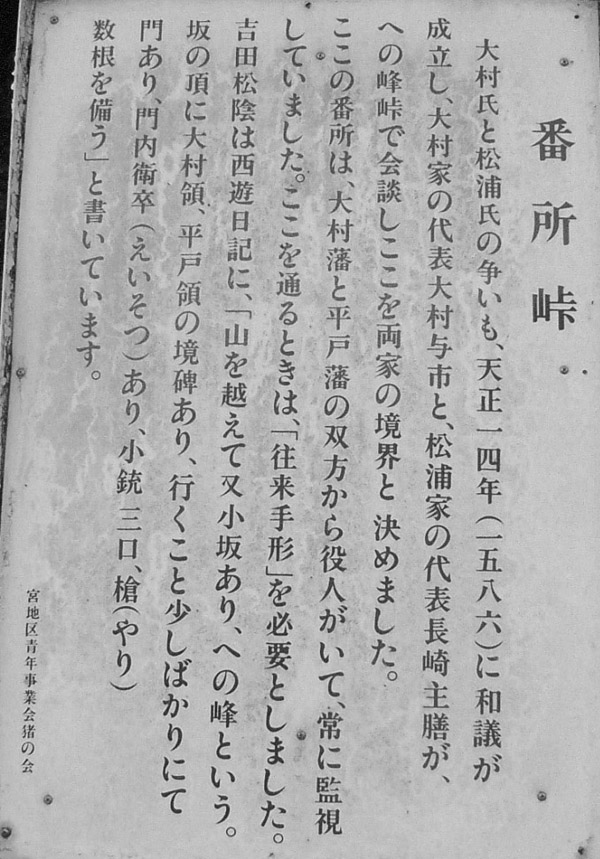 番所峠
大村氏と松浦氏の争いも、天正一四年(一五八六)に和議が
成立し、大村家の代表大村与市と、松浦家の代表長崎主膳が、
への峰峠で会談しここを両家の境界と決めました。
ここの番所は、大村藩と平戸藩の双方から役人がいて、常に監視
していました。ここを通るときは、「往来手形」を必要としました。
吉田松陰は西遊日記に、「山を越えて又小坂あり、への峰という。
坂の頂に大村領、平戸領の境碑あり、行くこと少しばかりにて
門あり、門内衛卒(えいそつ)あり、小銃三口、槍(やり)
数根を備う」と書いています。
宮地区青年事業会猪の会